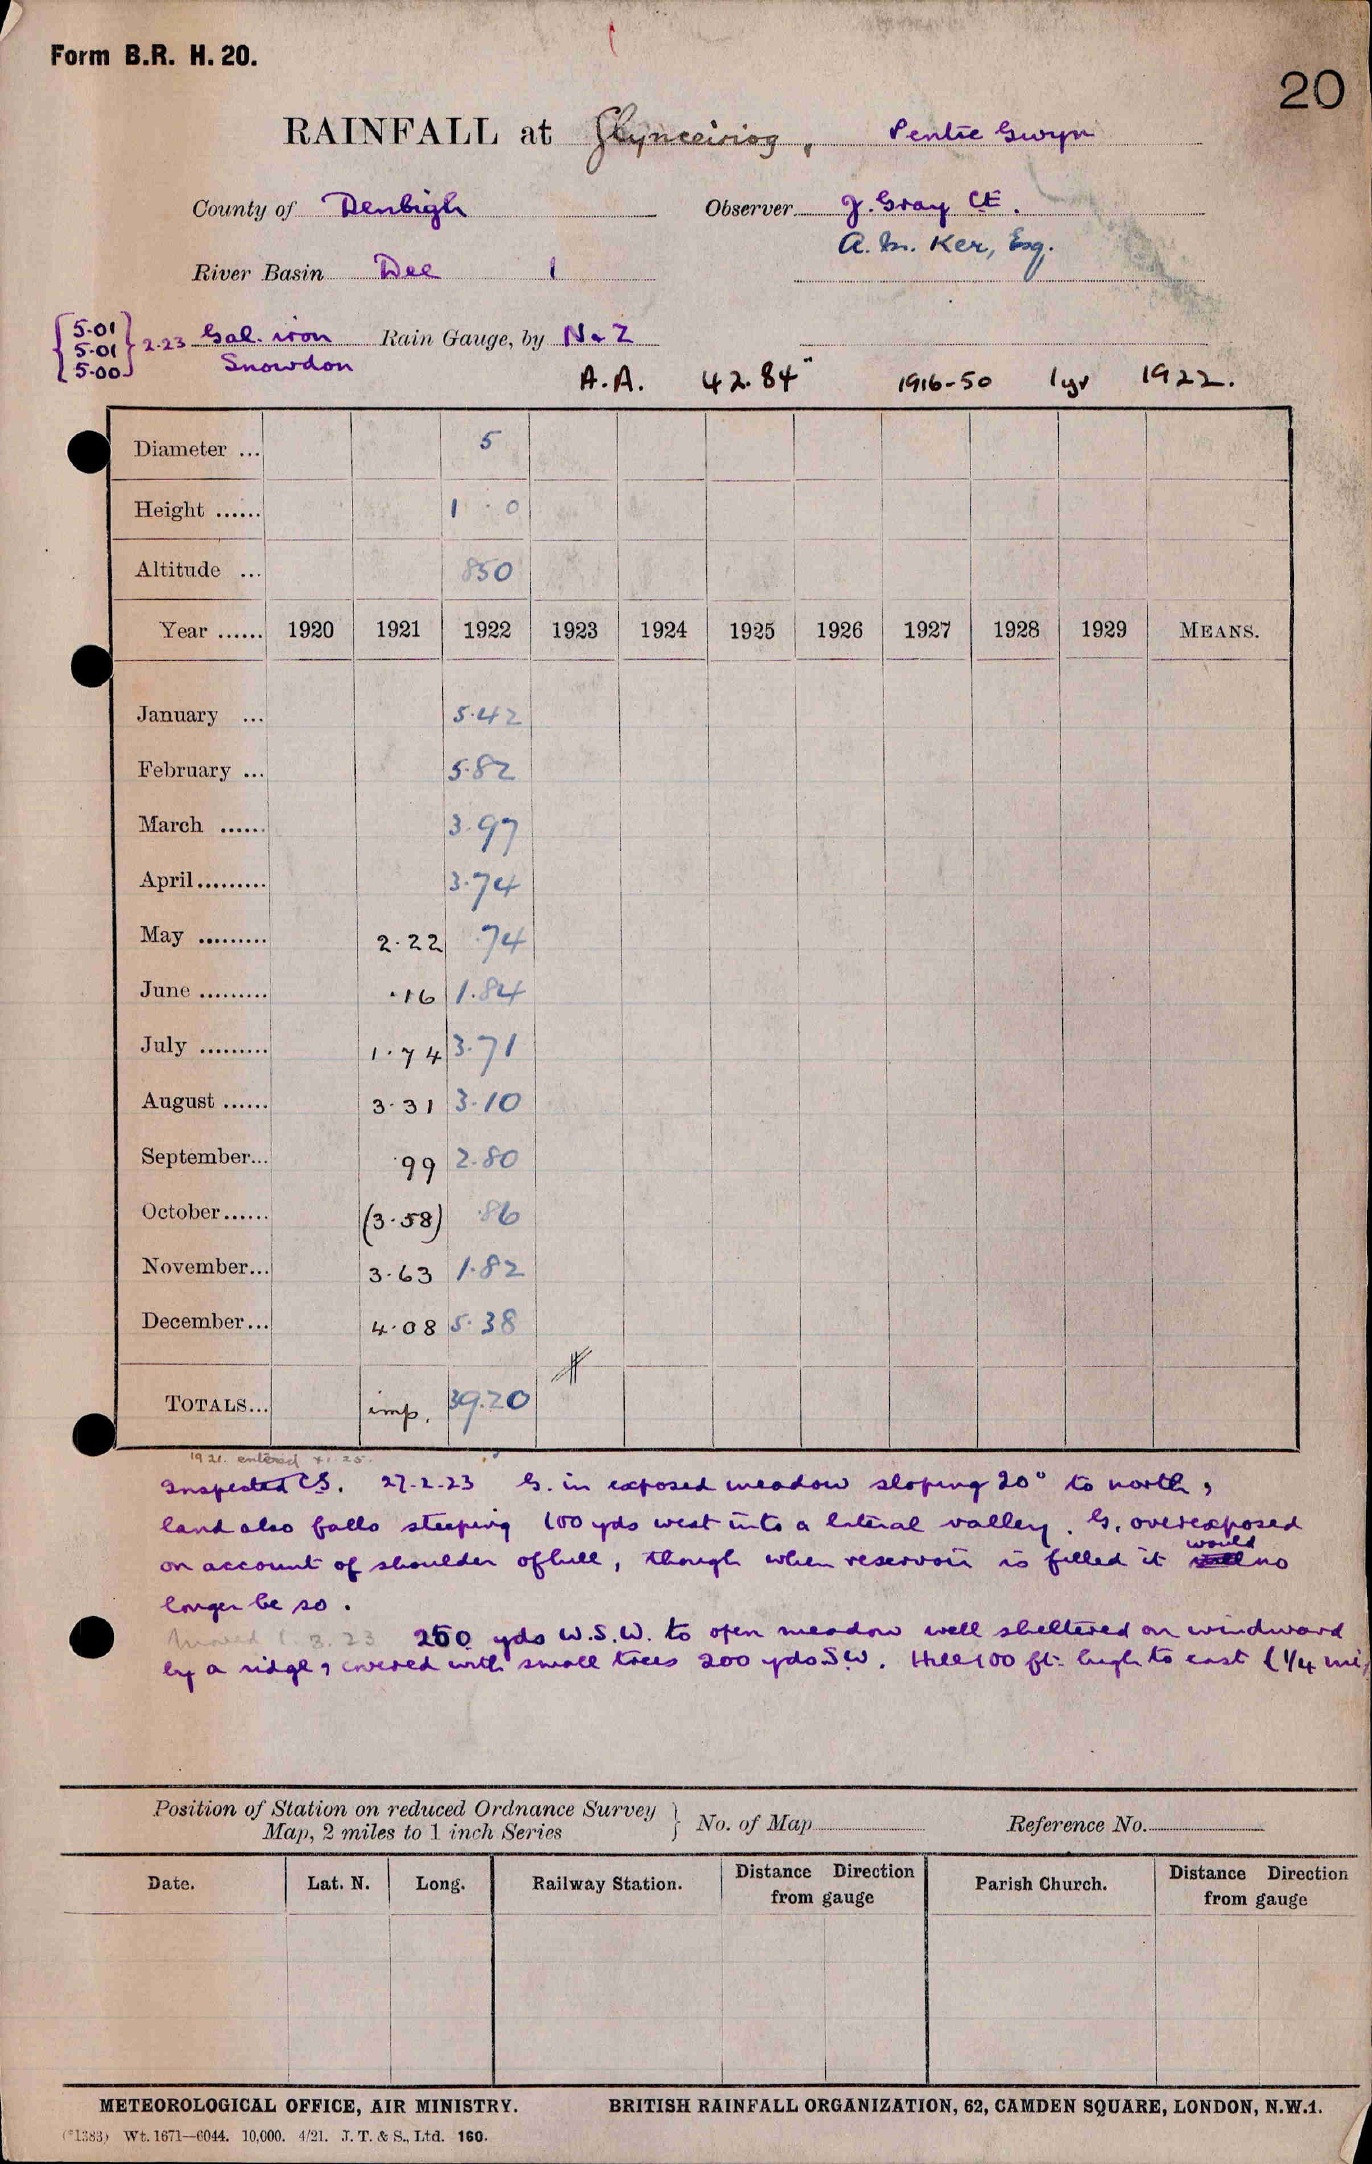 Form B.R. H. 20.
20
RAINFALL at Glynceiriog, Pentre Gwyn
County of Denbigh Observer J. Gray CE.
A. M. Ker, Esq.
River Basin Dee 1
{5.01 5.01 5.00} 2.23 Gal. iron Rain Gauge, by N & Z
Snowdon
A.A. 42.84" 1916-50 1yr 1922.
Diameter ... 5
Height ...... 1 · 0
Altitude ... 850
Year ...... 1920 1921 1922 1923 1924 1925 1926 1927 1928 1929 MEANS.
January ... 5.42
February ... 5.82
March ...... 3.97
April......... 3.74
May ......... 2.22 .74
June ......... .16 1.84
July ......... 1.74 3.71
August ...... 3.31 3.10
September... .99 2.80
October...... (3.58) .86
November... 3.63 1.82
December... 4.08 5.38
TOTALS... imp. 39.20
1921. entered
Inspected CS. 27.2.23 G. in exposed meadow sloping 20° to north,
land also falls steeping 100 yds west into a lateral valley. G. overexposed
on account of shoulder of hill, though when reservoir is filled it would no
longer be so.
Moved 1.3.23 250 yds W.S.W. to open meadow well sheltered on windward
by a ridge, covered with small trees 200 yds SW. Hill 100 ft. high to east (1/4 mi
Position of Station on reduced Ordnance Survey } No. of Map Reference No.
Map, 2 miles to 1 inch Series
Date. Lat. N. Long. Railway Station. Distance Direction from gauge Parish Church. Distance Direction from gauge
METEOROLOGICAL OFFICE, AIR MINISTRY. BRITISH RAINFALL ORGANIZATION, 62, CAMDEN SQUARE, LONDON, N.W.1.
(*1383) Wt. 1671—6044. 10,000. 4/21. J. T. & S., Ltd. 160.